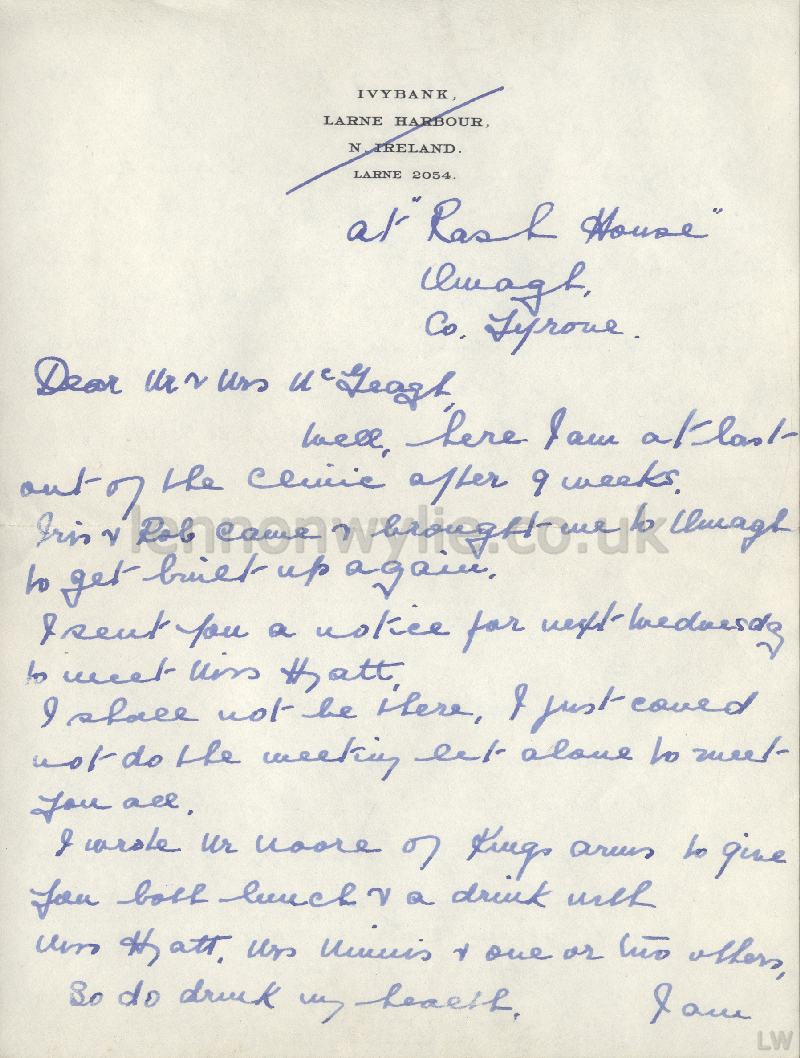 IVYBANK,
LARNE HARBOUR,
N. IRELAND.
LARNE 2054.
at "Rash House"
Omagh,
Co. Tyrone.
Dear Mr & Mrs McGeagh,
Well, here I am at last
out of the Clinic after 9 weeks.
Iris & Rob came & brought me to Omagh
to get built up again.
I sent you a notice for next Wednesday
to meet Miss Hyatt,
I shall not be there, I just could
not do the meeting let alone to meet
you all.
I wrote Mr Moore of Kings arms to give
you both lunch & a drink with
Miss Hyatt, Mrs Minnis & one or two others,
So do drink my health.    I am
lennonwylie.co.uk
LW